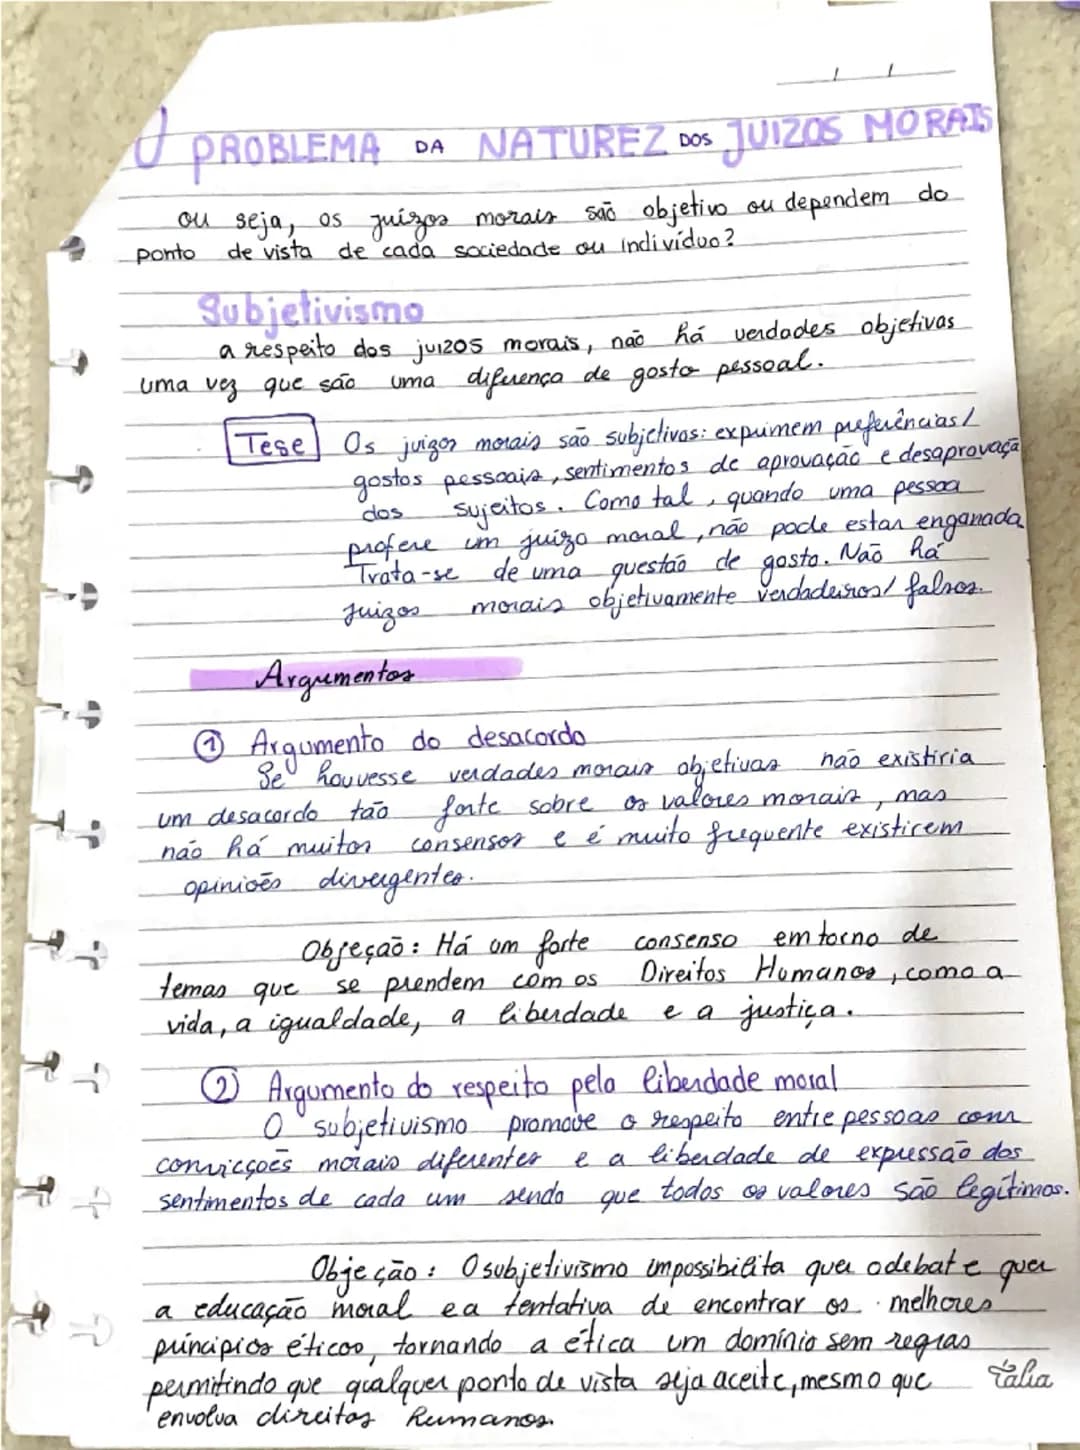 / /
O PROBLEMA DA NATUREZ DOS JUIZOS MORAIS
ou seja, os juízos morais são objetivo ou dependem do
ponto de vista de cada sociedade ou indivíduo?
Subjetivismo
a respeito dos juizos morais, não há verdades objetivas
uma vez que são uma diferença de gosto pessoal.
Tese Os juízos morais são subjetivos: exprimem preferências/
gostos pessoais, sentimentos de aprovação e desaprovaçã
dos sujeitos. Como tal, quando uma pessoa
profere um juízo moral, não pode estar enganada
Trata-se de uma questão de gosto. Não há
juizos morais objetivamente verdadeiros/ falsos.
Argumentos
① Argumento do desacordo
Se houvesse verdades morais objetivas não existiria
um desacordo tão forte sobre os valores morais, mas
não há muitos consensos e é muito frequente existirem
opiniões divergentes.
Objeção: Há um forte consenso em torno de
temas que se prendem com os Direitos Humanos, como a
vida, a igualdade, a liberdade e a justiça.
② Argumento do respeito pela liberdade moral
O subjetivismo promove o respeito entre pessoas com
convicções morais diferentes e a liberdade de expressão dos
sentimentos de cada um sendo que todos os valores são legítimos.
Objeção: O subjetivismo impossibilita quer o debate quer
a educação moral e a tentativa de encontrar os melhores
princípios éticos, tornando a ética um domínio sem regras
permitindo que qualquer ponto de vista seja aceite, mesmo que
envolva direitos humanos.
tália